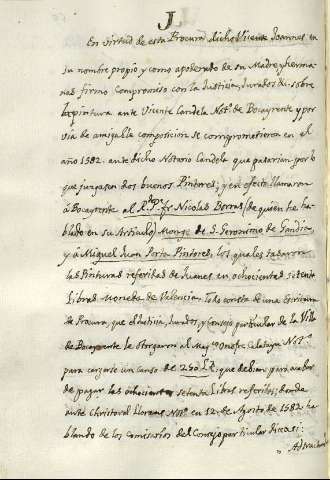 J
En virtud de esta Procura dicho Vicente Joannes en
su nombre propio y como apoderado de su Madre y herma-
nas firmo Compromiso con la Justicia, Jurados &. sobre
la pintura ante Vicente Candela Notº. de Bocayrente y por
via de amigable composicion se comprometieron en el
año 1582. ante dicho Notario Candela que pagarian por lo
que juzgasen dos buenos Pintores; y en efecto llamaron
á Bocayrente al R. P. Fr. Nicolas Borras (de quien he ha-
blado en su Articulo) Monge de S. Geronimo de Gandia,
y á Miguel Juan Porta Pintores, los quales tasaron
las Pinturas referidas de Juanes en ochocientas setenta
Libras Moneda de Valencia. Todo consta de una Escritura
de Procura, que el Justicia, Jurados, y Consejo particular de la Villa
de Bocayrente le otorgaron al Magco. Onofre Calatayu Notº.
para cargarse un censo de 250 L. que debian para acabar
de pagar las ochocientas setenta Libras referidas; donde
ante Christoval Llorens Notº. en 12. de Agosto de 1582 ha-
blando de los comisarios del Consejo particular dice asi: